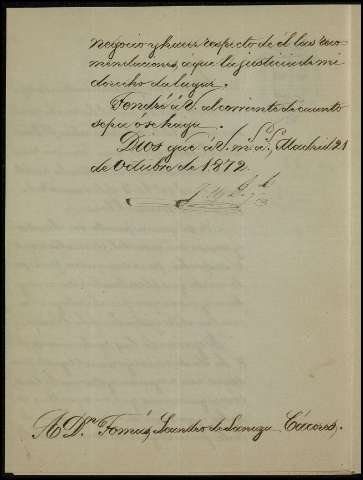 negocio y hacer respecto de él las reco
mendaciones, á que la justicia de mi
derecho da lugar.
Tendré á V. al corriente de cuanto
sepa ó se haga.
Dios gue á V. m. a., Madrid 21
de Octubre de 1872.
A Dn Tomás, Leandro de Cáceres.